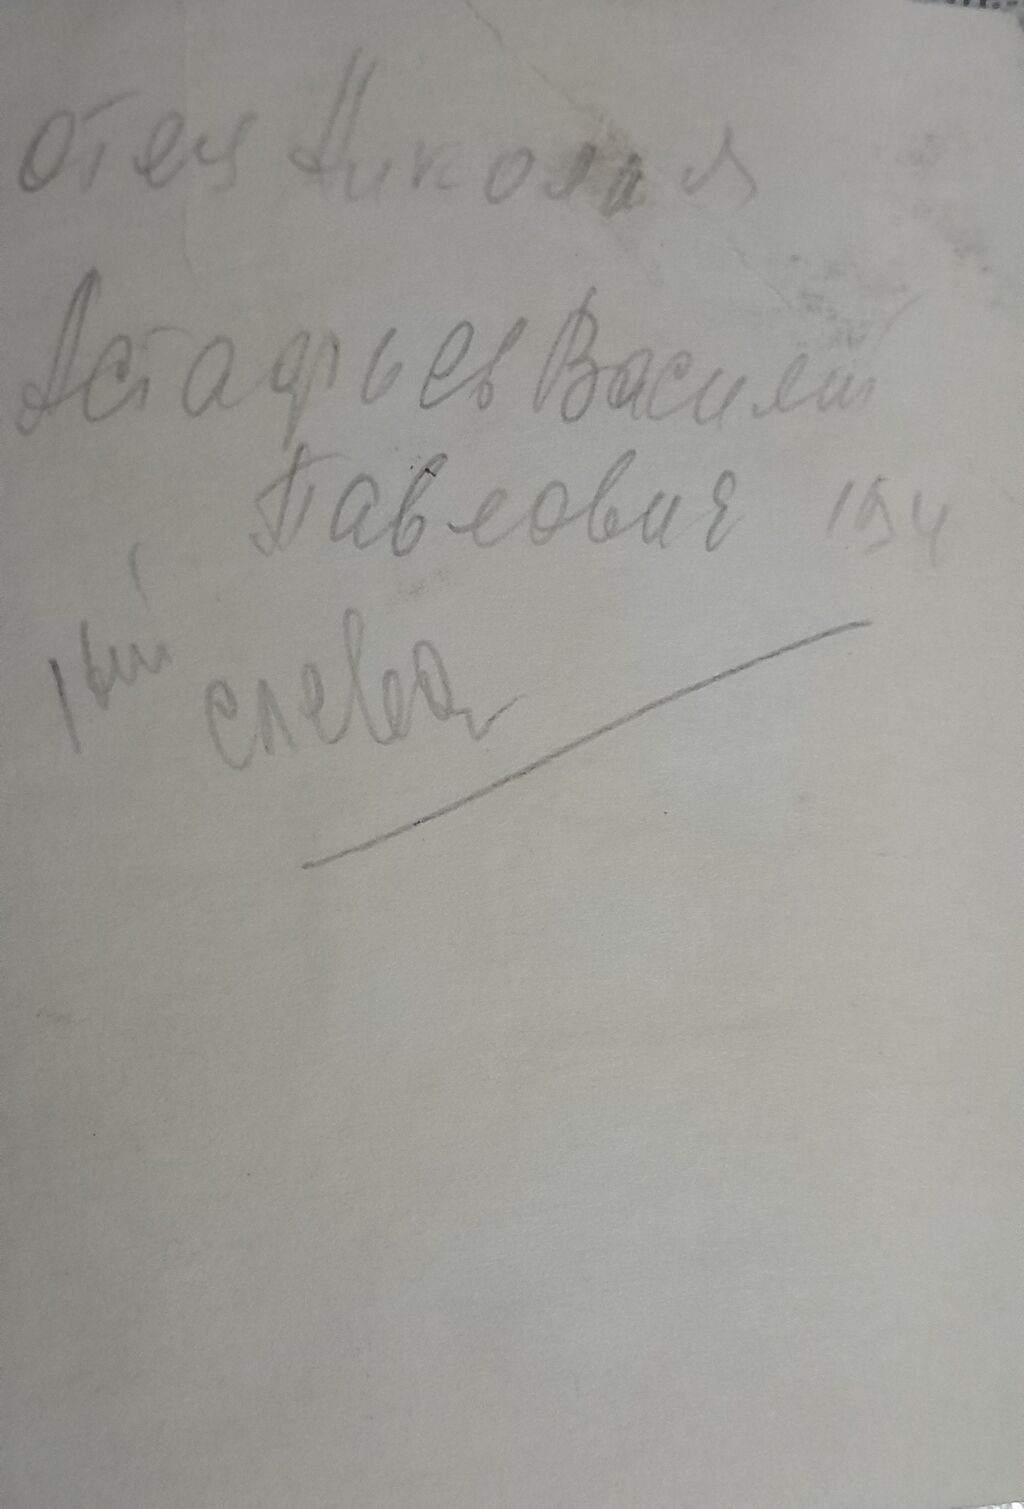 отец Николая
Астафьев Василий
Павлович
1ый слева